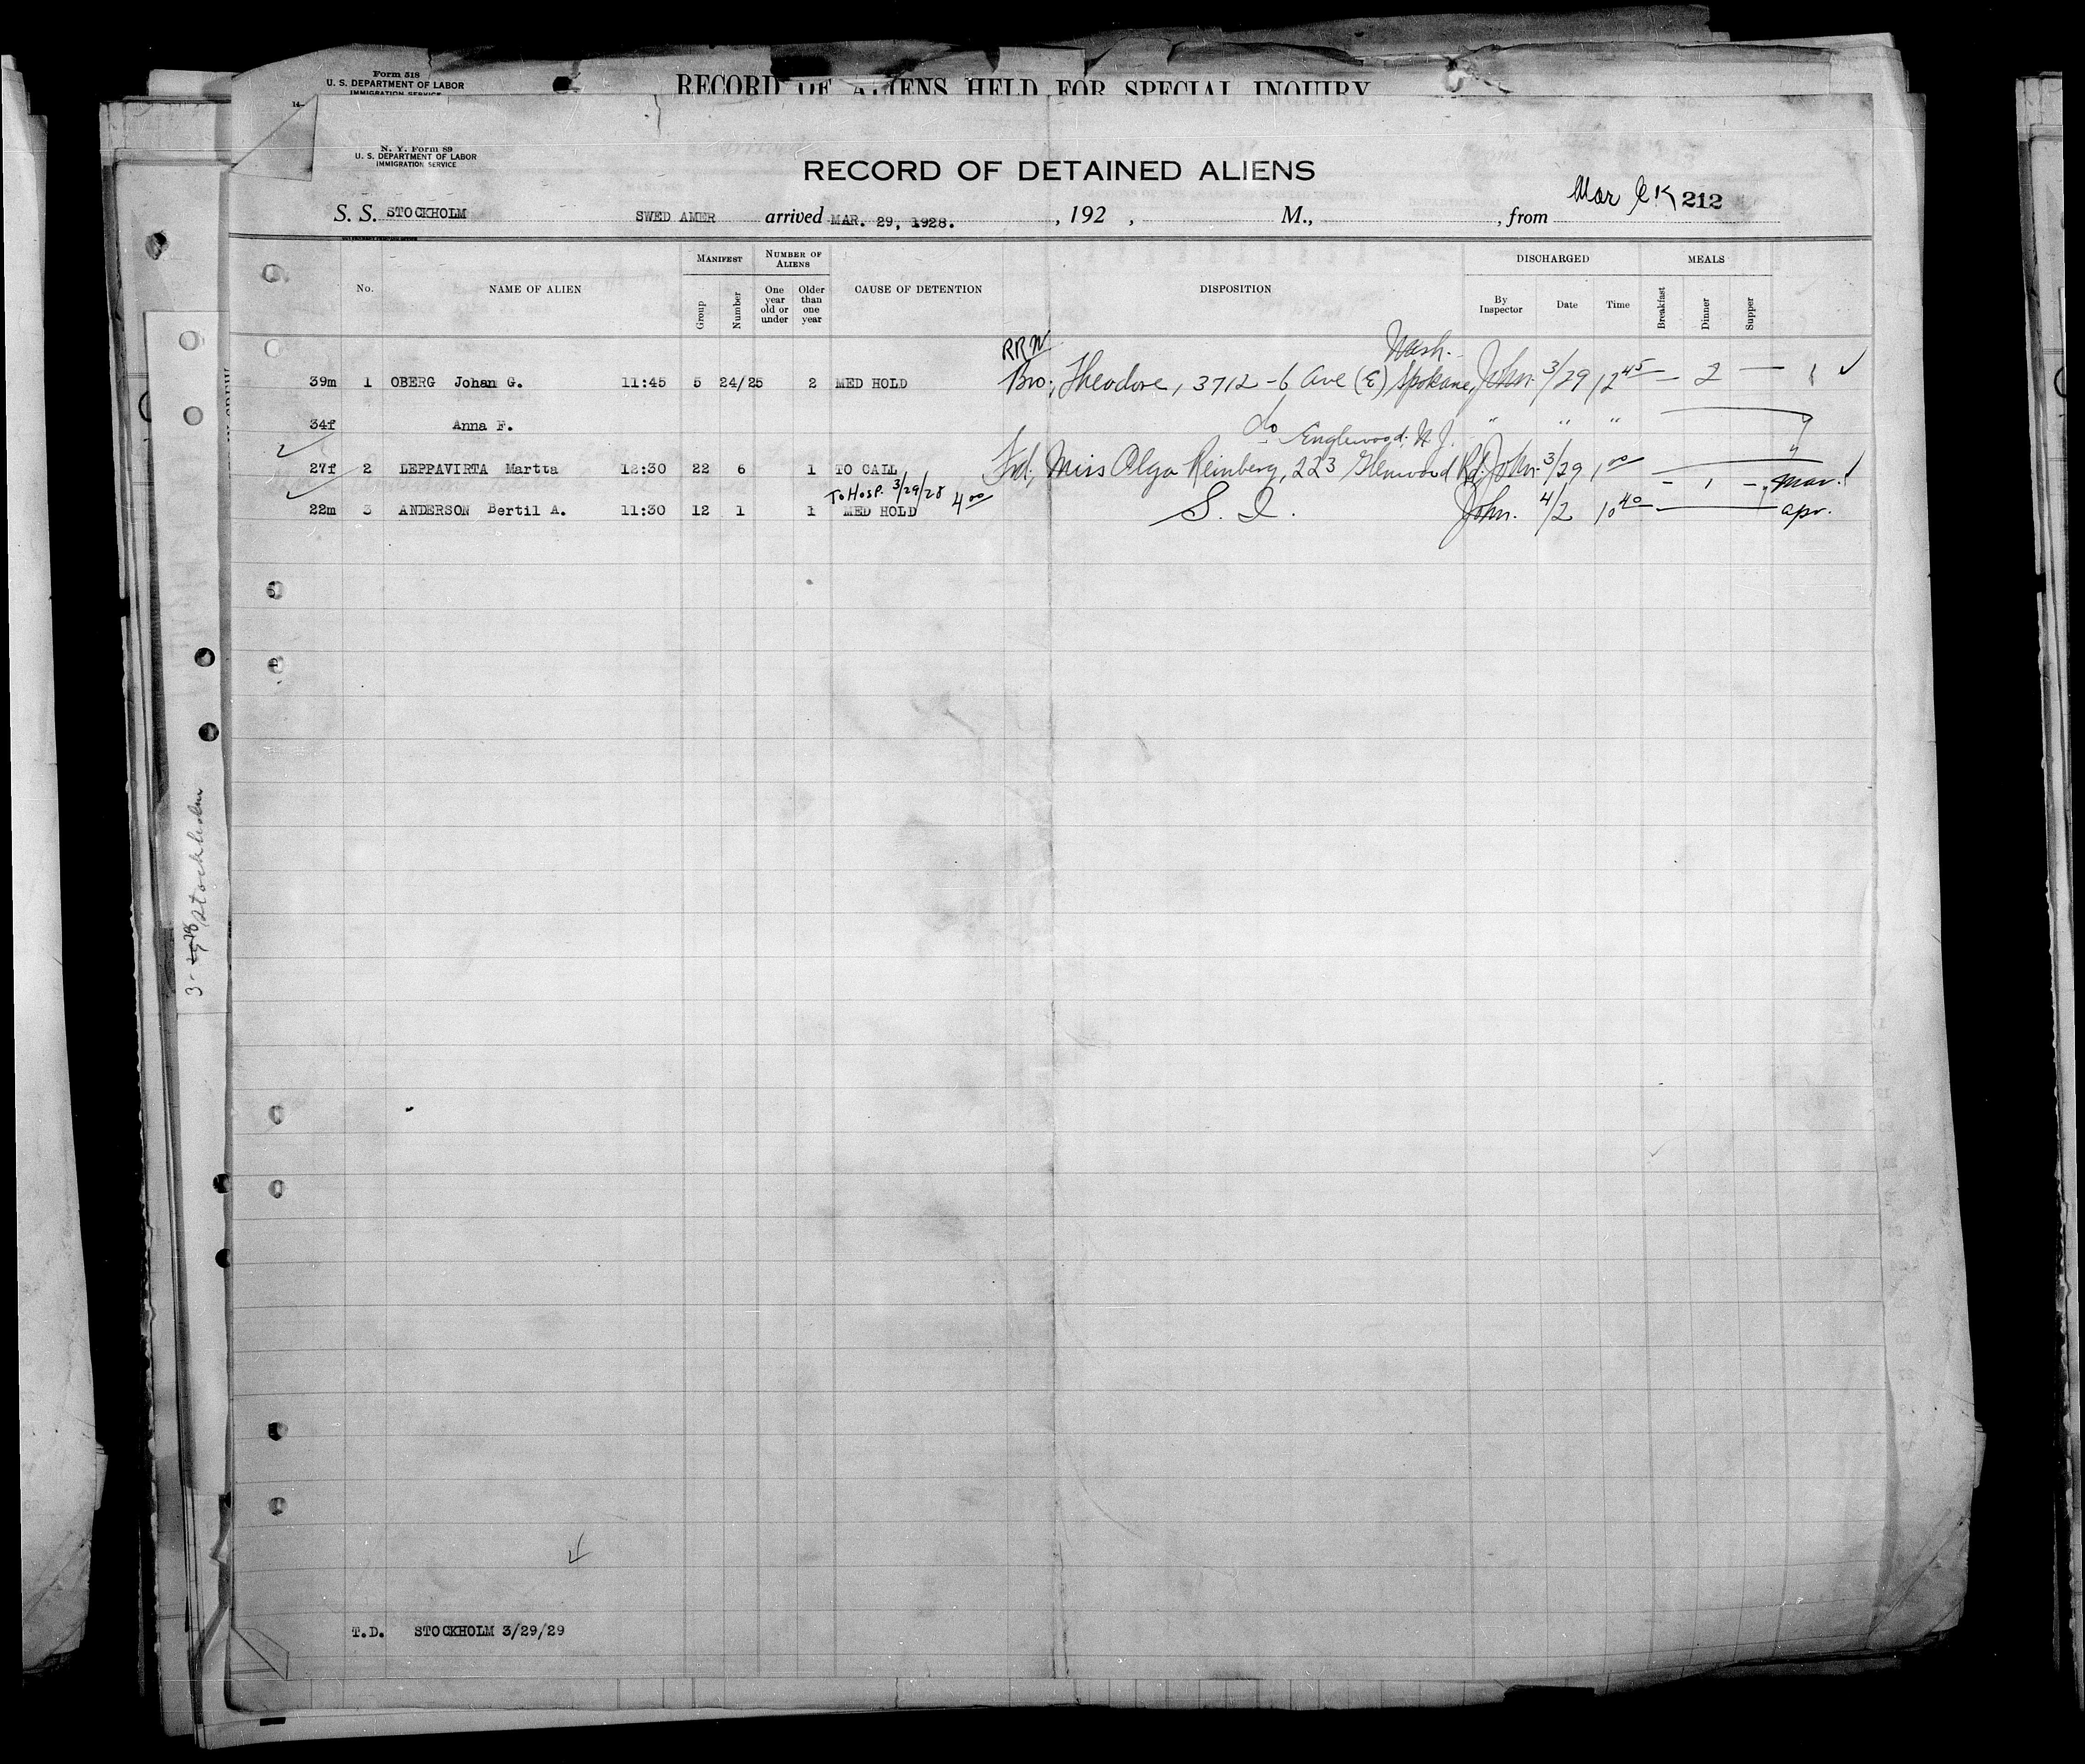 Form 518
U. S. DEPARTMENT OF LABOR
IMMIGRATION SERVICE
RECORD OF ALIENS HELD FOR SPECIAL INQUIRY
14-
N. Y. Form 89
U. S. DEPARTMENT OF LABOR
IMMIGRATION SERVICE
RECORD OF DETAINED ALIENS
Mar 212
S. S. STOCKHOLM SWED AMER arrived MAR. 29, 1928. , 192 , M., , from
No. NAME OF ALIEN MANIFEST Group Number NUMBER OF ALIENS One year old or under Older than one year CAUSE OF DETENTION DISPOSITION DISCHARGED By Inspector Date Time MEALS Breakfast Dinner Supper
RRN Wash.
39m 1 OBERG Johan G. 11:45 5 24/25 2 MED HOLD Bro; Theodore, 3712 - 6 Ave (E) Spokane, John. 3/29 12 45 — 2 —
34f Anna F. do " " "
Englewood. N. J.
27f 2 LEPPAVIRTA Martta 12:30 22 6 1 TO CALL Frd; Miss Olga Reinberg, 223 Glenwood Rd. John. 3/29 1 00
To Hosp. 3/29/28 4 00 - 1 - Mar.
22m 3 ANDERSON Bertil A. 11:30 12 1 1 MED HOLD S. I. John. 4/2 10 40 apr.
3- 29 28 Stockholm
T.D. STOCKHOLM 3/29/29